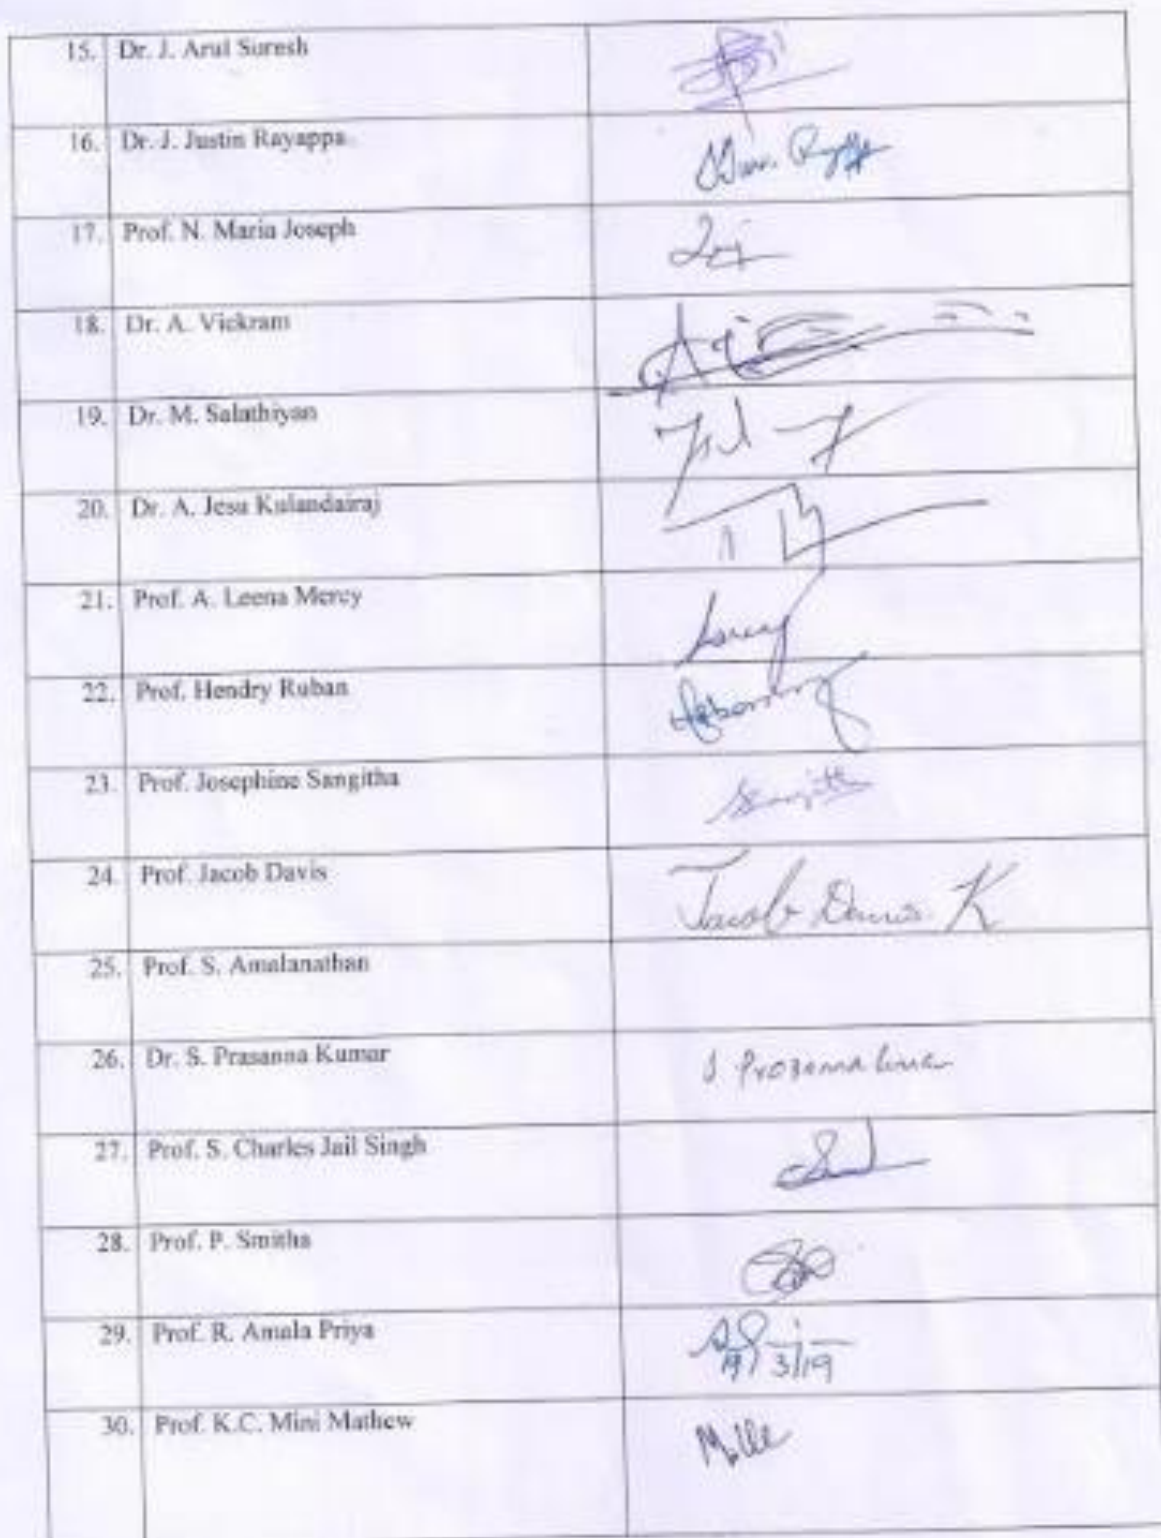 15. Dr. J. Arul Suresh
16. Dr. J. Justin Rayappa
17. Prof. N. Maria Joseph
18. Dr. A. Vickram
19. Dr. M. Salathiyan
20. Dr. A. Jesu Kulandairaj
21. Prof. A. Leena Mercy
22. Prof. Hendry Ruban
23. Prof. Josephine Sangitha Sangitha
24. Prof. Jacob Davis Jacob Davis. K
25. Prof. S. Amalanathan
26. Dr. S. Prasanna Kumar
27. Prof. S. Charles Jail Singh
28. Prof. P. Smitha
29. Prof. R. Amala Priya 19/3/19
30. Prof. K.C. Mini Mathew